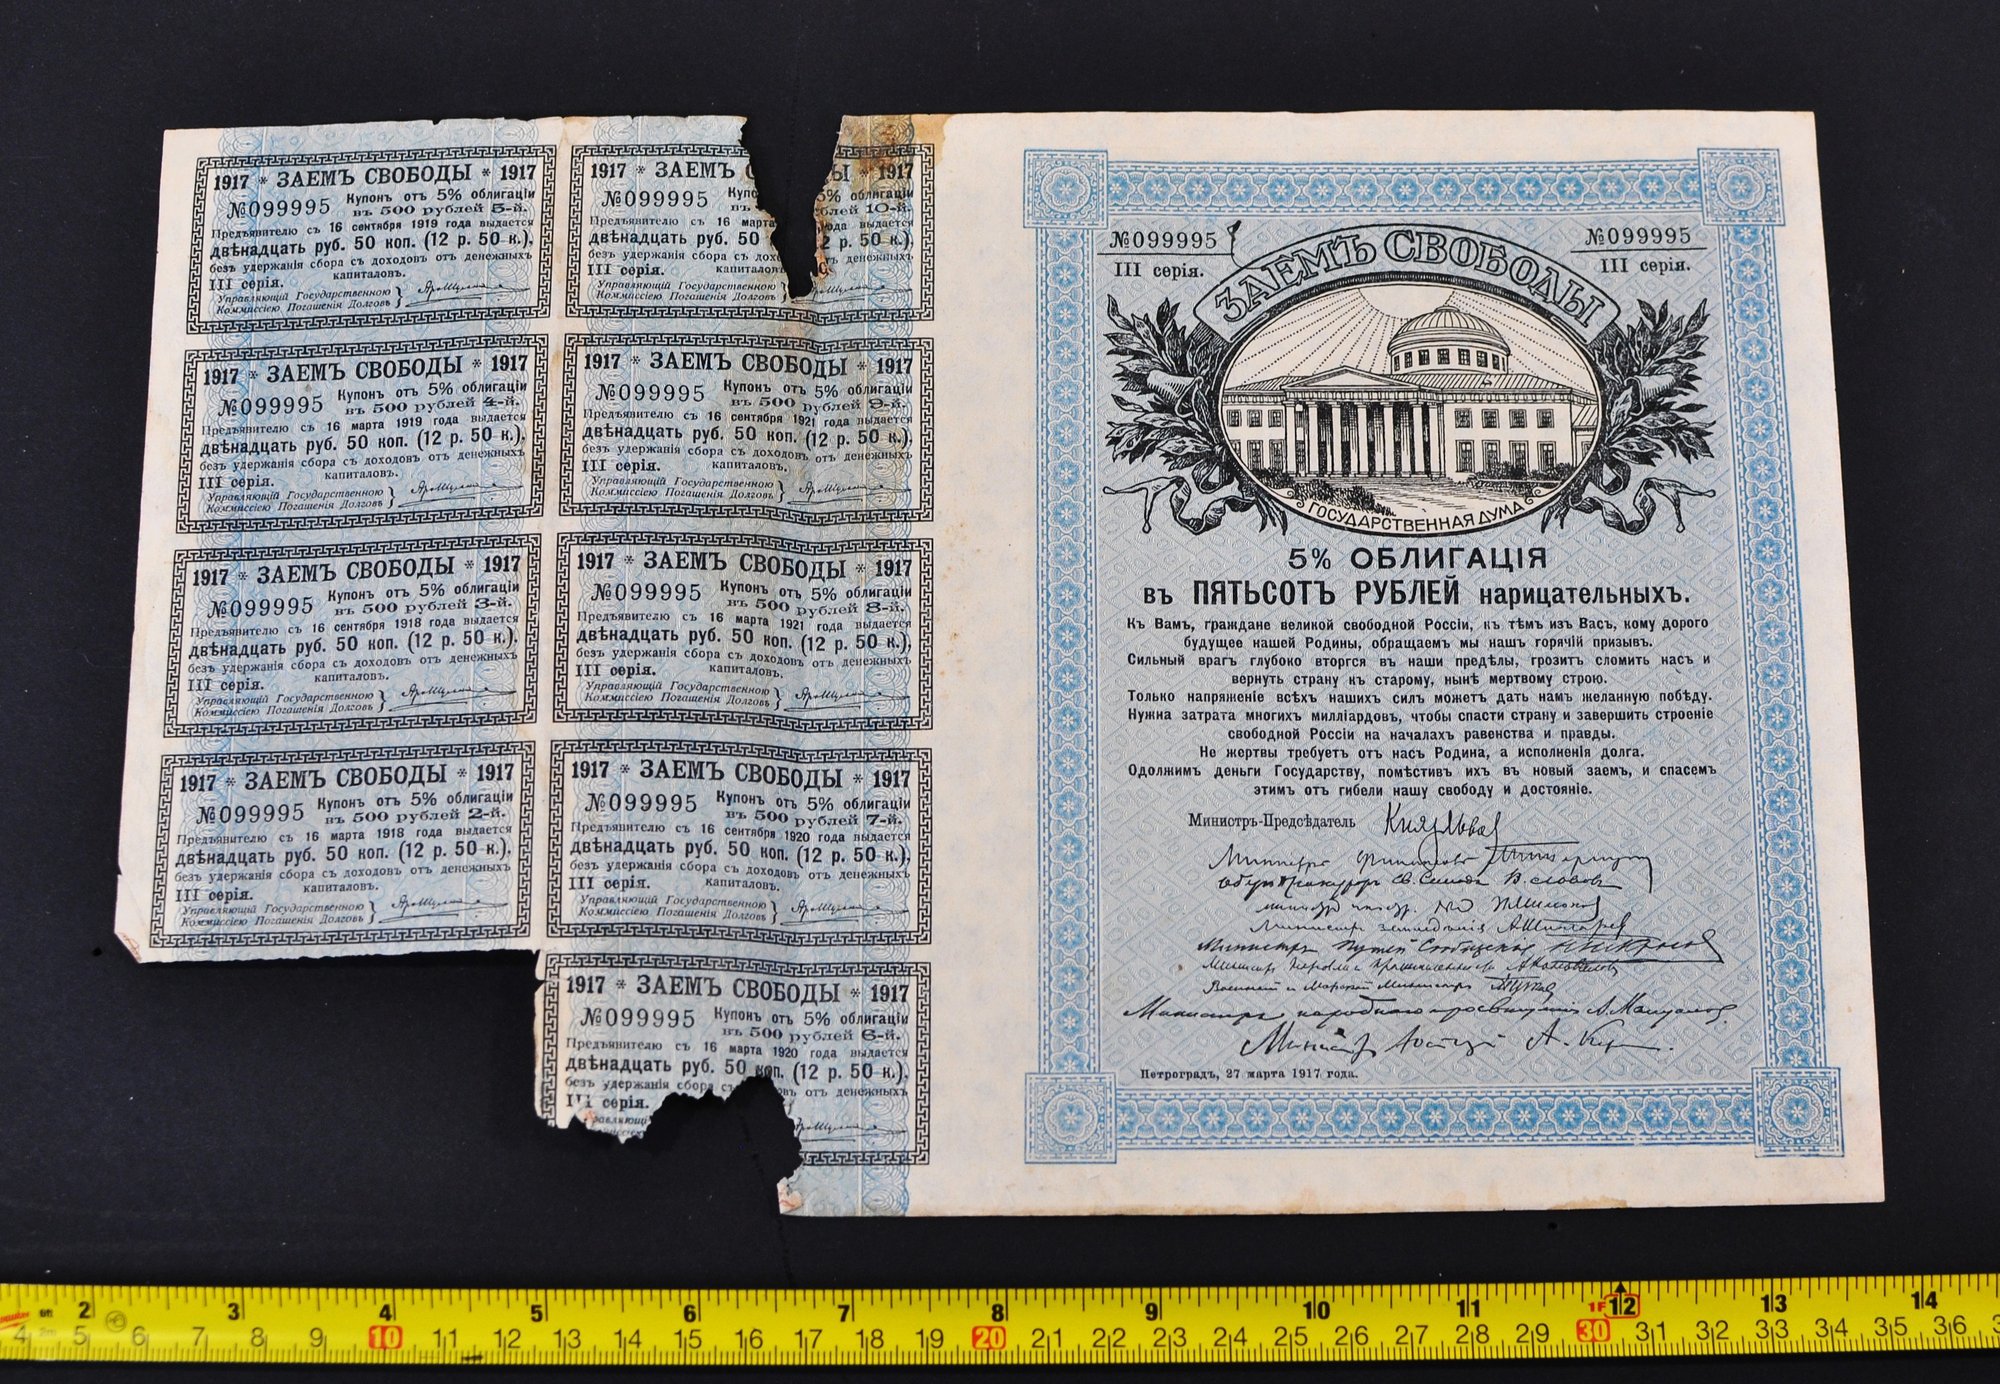 1917 * ЗАЕМЪ СВОБОДЫ * 1917
№099995 Купонъ отъ 5% облигаціи
въ 500 рублей 5-й.
Предъявителю съ 16 сентября 1919 года выдается
двѣнадцать руб. 50 коп. (12 р. 50 к.),
безъ удержанія сбора съ доходовъ отъ денежныхъ
капиталовъ.
III серія.
Управляющій Государственною
Коммиссіею Погашенія Долговъ
1917 * ЗАЕМЪ СВОБОДЫ * 1917
№099995 Купонъ отъ 5% облигаціи
въ 500 рублей 4-й.
Предъявителю съ 16 марта 1919 года выдается
двѣнадцать руб. 50 коп. (12 р. 50 к.),
безъ удержанія сбора съ доходовъ отъ денежныхъ
капиталовъ.
III серія.
Управляющій Государственною
Коммиссіею Погашенія Долговъ
1917 * ЗАЕМЪ СВОБОДЫ * 1917
№099995 Купонъ отъ 5% облигаціи
въ 500 рублей 3-й.
Предъявителю съ 16 сентября 1918 года выдается
двѣнадцать руб. 50 коп. (12 р. 50 к.),
безъ удержанія сбора съ доходовъ отъ денежныхъ
капиталовъ.
III серія.
Управляющій Государственною
Коммиссіею Погашенія Долговъ
1917 * ЗАЕМЪ СВОБОДЫ * 1917
№099995 Купонъ отъ 5% облигаціи
въ 500 рублей 2-й.
Предъявителю съ 16 марта 1918 года выдается
двѣнадцать руб. 50 коп. (12 р. 50 к.),
безъ удержанія сбора съ доходовъ отъ денежныхъ
капиталовъ.
III серія.
Управляющій Государственною
Коммиссіею Погашенія Долговъ
1917 * ЗАЕМЪ 1917
№099995 5% облигаціи
10-й.
Предъявителю съ 16 марта года выдается
двѣнадцать руб. 50 р. 50 к.),
безъ удержанія сбора съ отъ денежныхъ
III серія.
Управляющій Государственною
Коммиссіею Погашенія Долговъ
1917 * ЗАЕМЪ СВОБОДЫ * 1917
№099995 Купонъ отъ 5% облигаціи
въ 500 рублей 9-й.
Предъявителю съ 16 сентября 1921 года выдается
двѣнадцать руб. 50 коп. (12 р. 50 к.),
безъ удержанія сбора съ доходовъ отъ денежныхъ
капиталовъ.
III серія.
Управляющій Государственною
Коммиссіею Погашенія Долговъ
1917 * ЗАЕМЪ СВОБОДЫ * 1917
№099995 Купонъ отъ 5% облигаціи
въ 500 рублей 8-й.
Предъявителю съ 16 марта 1921 года выдается
двѣнадцать руб. 50 коп. (12 р. 50 к.),
безъ удержанія сбора съ доходовъ отъ денежныхъ
капиталовъ.
III серія.
Управляющій Государственною
Коммиссіею Погашенія Долговъ
1917 * ЗАЕМЪ СВОБОДЫ * 1917
№099995 Купонъ отъ 5% облигаціи
въ 500 рублей 7-й.
Предъявителю съ 16 сентября 1920 года выдается
двѣнадцать руб. 50 коп. (12 р. 50 к.),
безъ удержанія сбора съ доходовъ отъ денежныхъ
капиталовъ.
III серія.
Управляющій Государственною
Коммиссіею Погашенія Долговъ
1917 * ЗАЕМЪ СВОБОДЫ * 1917
№099995 Купонъ отъ 5% облигаціи
въ 500 рублей 6-й.
Предъявителю съ 16 марта 1920 года выдается
двѣнадцать руб. 50 коп. (12 р. 50 к.),
безъ удержанія сбора съ отъ денежныхъ
III серія.
№099995
III серія.
№099995
III серія.
ЗАЕМЪ СВОБОДЫ
ГОСУДАРСТВЕННАЯ ДУМА
5% ОБЛИГАЦІЯ
въ ПЯТЬСОТЪ РУБЛЕЙ нарицательныхъ.
Къ Вамъ, граждане великой свободной Россіи, къ тѣмъ изъ Васъ, кому дорого
будущее нашей Родины, обращаемъ мы нашъ горячій призывъ.
Сильный врагъ глубоко вторгся въ наши предѣлы, грозитъ сломить насъ и
вернуть страну къ старому, нынѣ мертвому строю.
Только напряженіе всѣхъ нашихъ силъ можетъ дать намъ желанную побѣду.
Нужна затрата многихъ милліардовъ, чтобы спасти страну и завершить строеніе
свободной Россіи на началахъ равенства и правды.
Не жертвы требуетъ отъ насъ Родина, а исполненія долга.
Одолжимъ деньги Государству, помѣстивъ ихъ въ новый заемъ, и спасемъ
этимъ отъ гибели нашу свободу и достояніе.
Министръ-Предсѣдатель Князь Львов
Министръ финансовъ
Оберъ-Прокуроръ Св. Синода В. Львовъ
Министръ земледѣлія А. Шингаревъ
Министръ Путей Сообщенія
Министръ торговли и промышленности А. Коноваловъ
Военный и Морской Министръ
Министръ народнаго просвѣщенія А. Мануйловъ.
Министръ Юстиціи А. Керенскій
Петроградъ, 27 марта 1917 года.
2 3 4 5 6 7 8 9 10 11 1F 12 13 14
4 2m 5 6 7 8 9 10 11 12 13 14 15 16 17 18 19 20 21 22 23 24 25 26 27 28 29 30 31 32 33 34 35 36